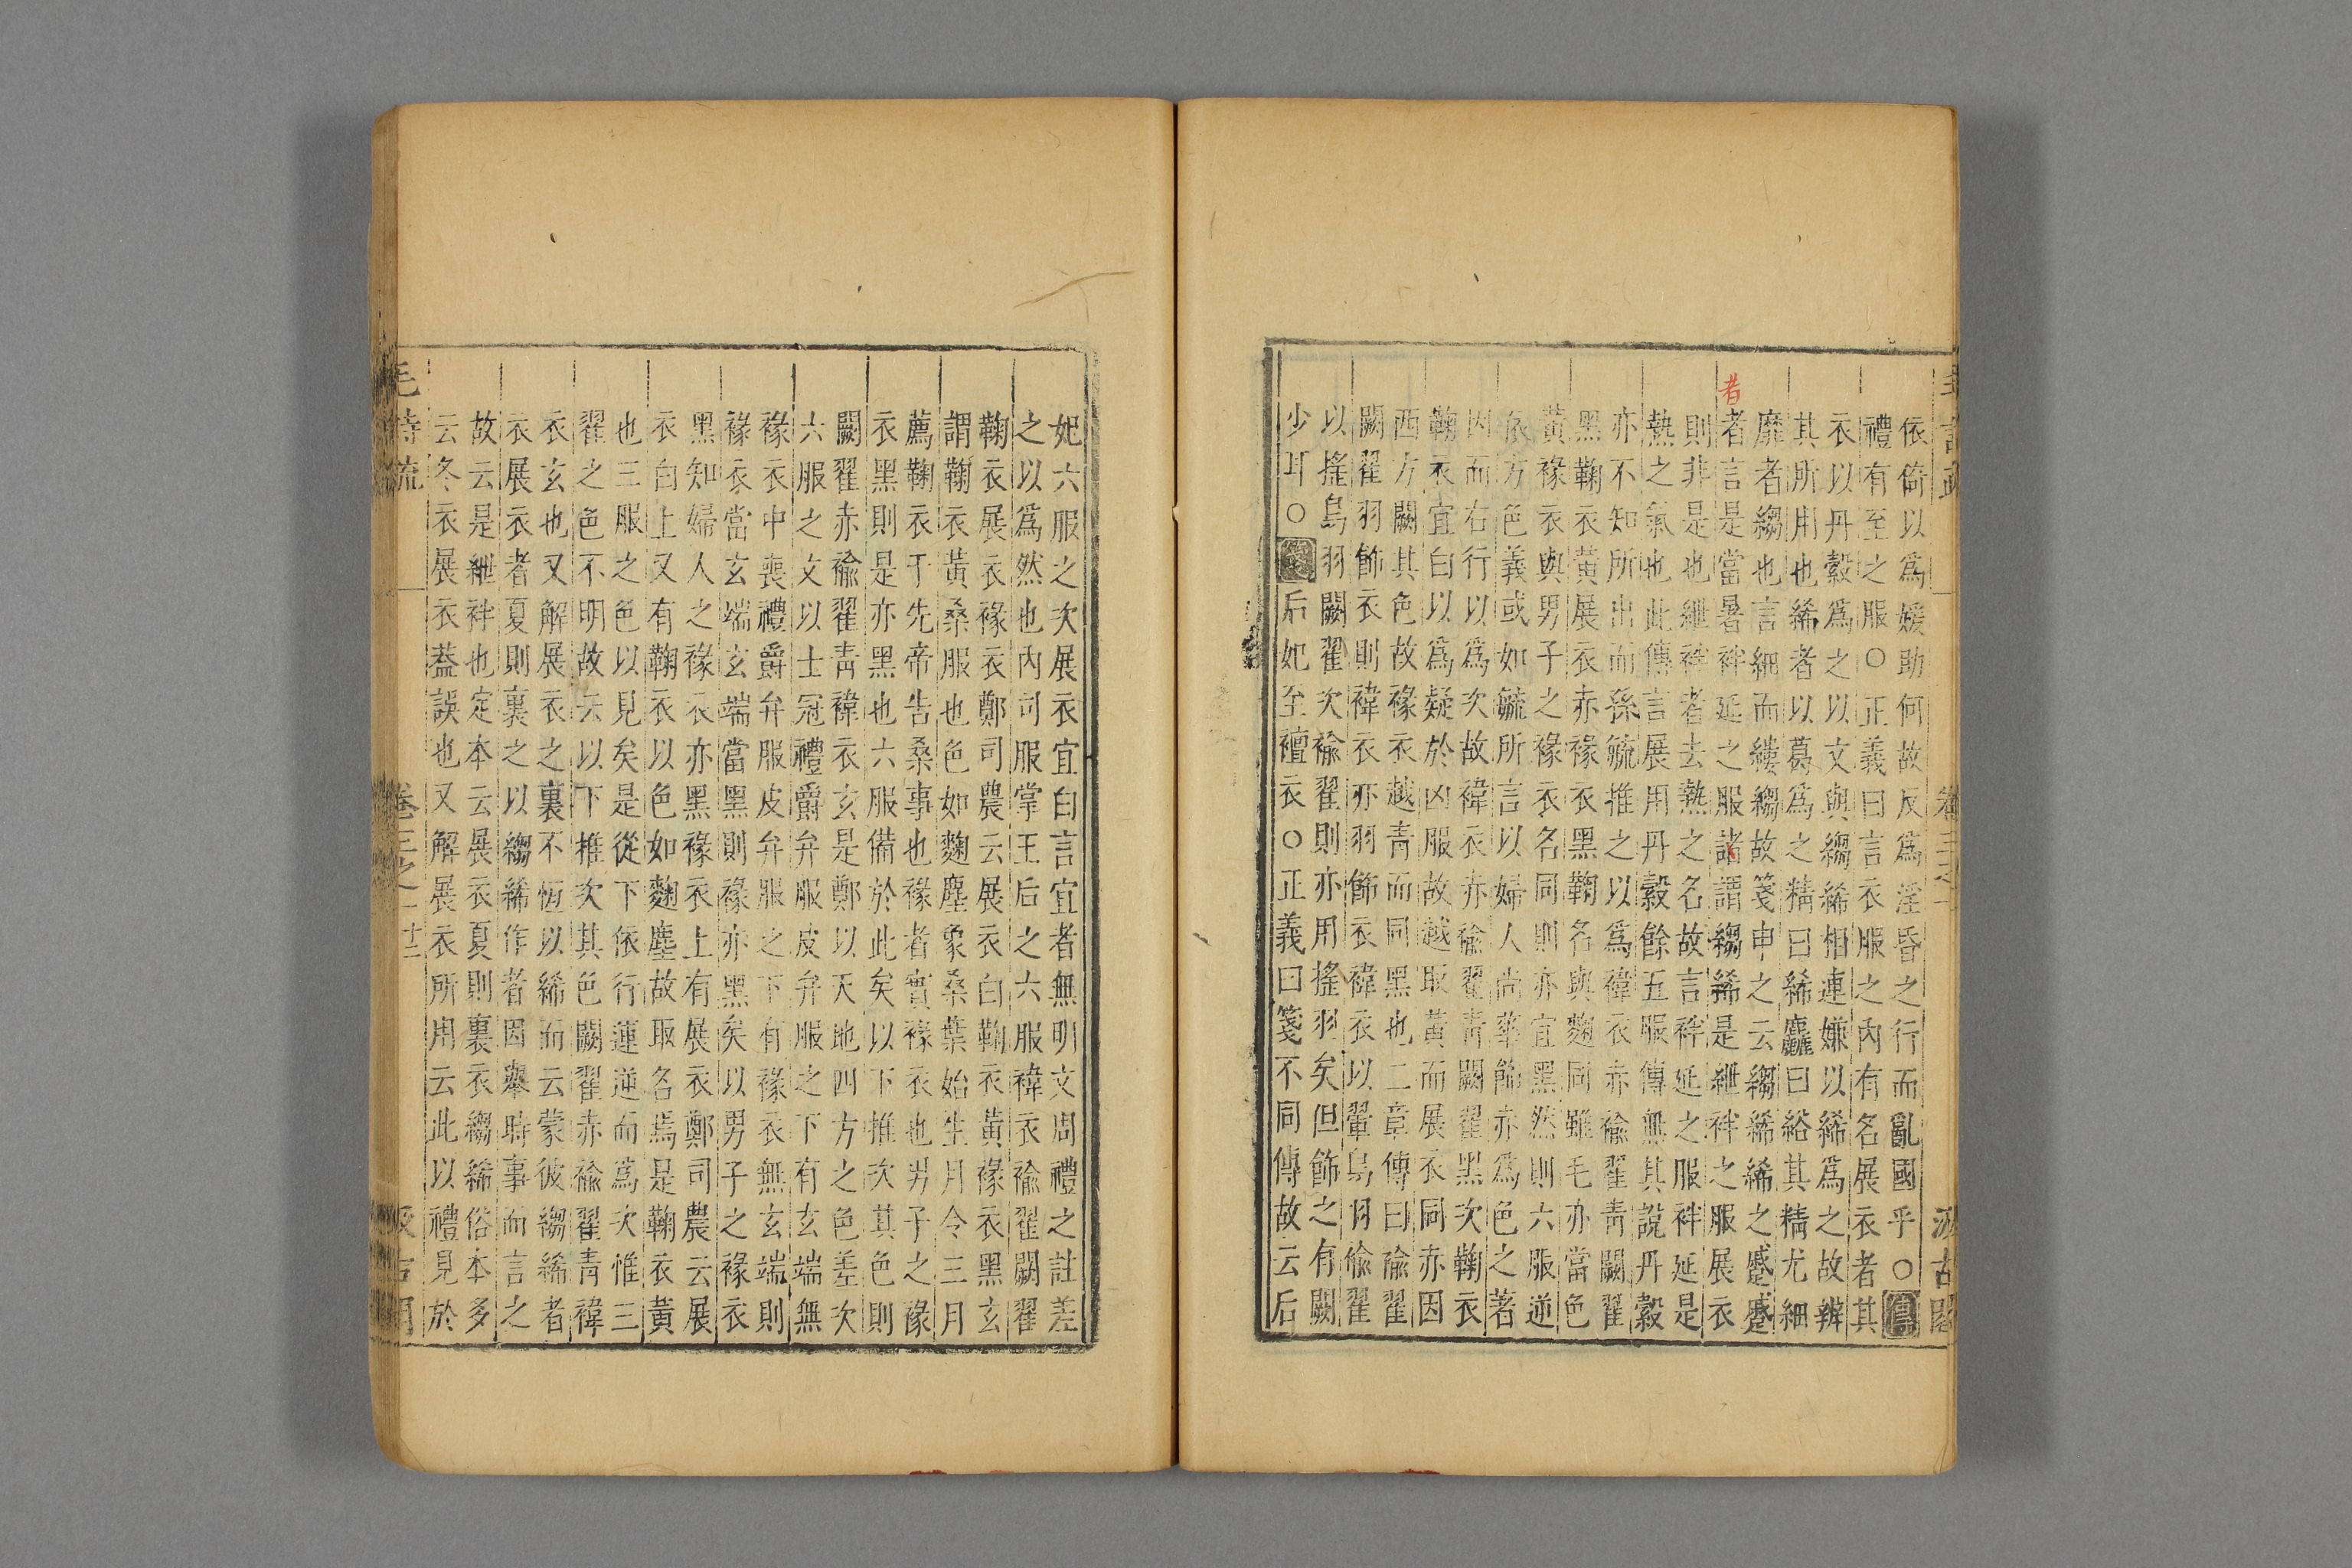 依倚以爲媛助何故反爲淫昏之行而亂國乎○傳
禮有至之服○正義曰言衣服之內有名展衣者其
衣以丹縠爲之以文與縐絺相連嫌以絺爲之故辨
其所用也絺者以葛爲之精曰絺麤曰綌其精尤細
靡者縐也言細而縷縐故箋申之云縐絺絺之蹙蹙
者
者言是當暑袢延之服諸謂縐絺是紲袢之服展衣
則非是也紲袢者去熱之名故言袢延之服袢延是
熱之氣也此傳言展用丹縠餘五服傳無其說丹縠
亦不知所出而孫毓推之以爲褘衣赤褕翟青闕翟
黑鞠衣黃展衣赤褖衣黑鞠名與麴同雖毛亦當色
黃褖衣與男子之褖衣名同則亦宜黑然則六服逆
依方色義或如毓所言以婦人尚華飾亦爲色之著
因而右行以爲次故褘衣赤褕翟青闕翟黑次鞠衣
鞠衣宜白以爲疑於凶服故越取黃而展衣同赤因
西方闕其色故褖衣越青而同黑也二章傳曰褕翟
闕翟羽飾衣則褘衣亦羽飾衣褘衣以翬鳥羽褕翟
以搖鳥羽闕翟次褕翟則亦用搖羽矣但飾之有闕
少耳○后妃至襢衣○正義曰箋不同傳故云后
妃六服之次展衣宜白言宜者無明文周禮之註差
之以爲然也內司服掌王后之六服褘衣褕翟闕翟
鞠衣展衣褖衣鄭司農云展衣白鞠衣黃褖衣黑玄
謂鞠衣黃桑服也色如麴塵象桑葉始生月令三月
薦鞠衣于先帝告桑事也褖者實褖衣也男子之褖
衣黑則是亦黑也六服備於此矣以下推次其色則
闕翟赤褕翟青褘衣玄是鄭以天地四方之色差次
六服之文以士冠禮爵弁服皮弁服之下有玄端無
褖衣中喪禮爵弁服皮弁服之下有褖衣無玄端則
褖衣當玄端玄端當黑則褖亦黑矣以男子之褖衣
黑知婦人之褖衣亦黑褖衣上有展衣鄭司農云展
衣白上又有鞠衣以色如麴塵故取名焉是鞠衣黃
也三服之色以見矣是從下依行運逆而爲次惟三
翟之色不明故云以下推次其色闕翟赤褕翟青褘
衣玄也又解展衣之裏不恆以絺而云蒙彼縐絺者
衣展衣者夏則裏之以縐絺作者因舉時事而言之
故云是紲袢也定本云展衣夏則裏衣縐絺俗本多
云冬衣展衣蓋誤也又解展衣所用云此以禮見於
毛詩疏 卷三之一